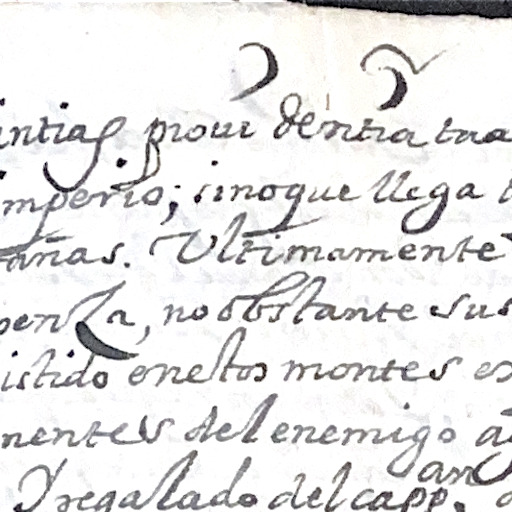 intias. prouidentia tua
imperio; sinoque llega
añas. Ultimamente
penza, no obstante sus
istido en estos montes ex
mentes del enemigo
Y regalado del capp.an